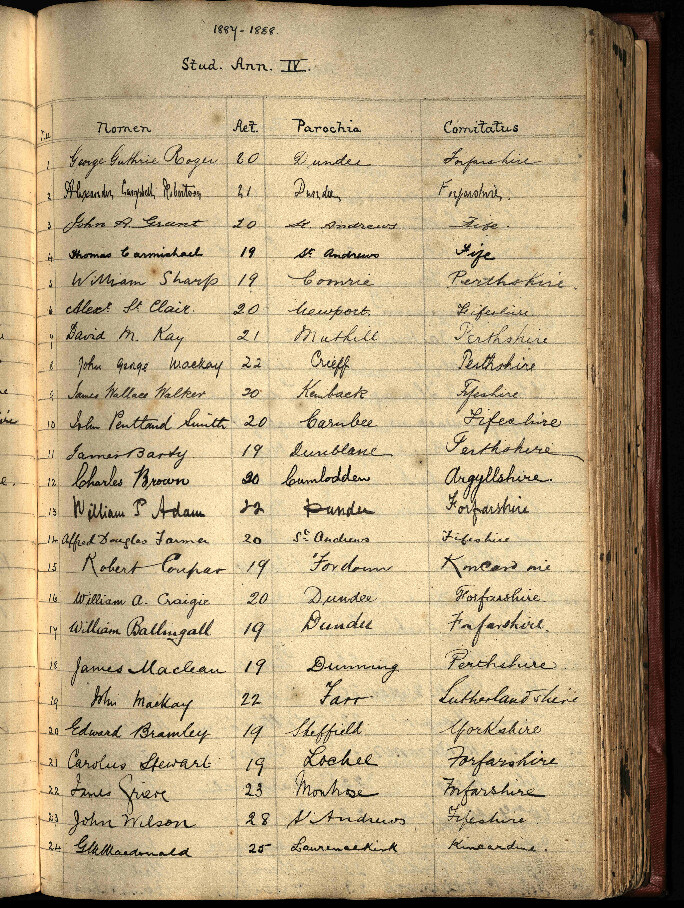 1887-1888.
Stud. Ann. IV.
Nomen Aet. Parochia Comitatus
1 George Guthrie Roger 20 Dundee Forfarshire
2 Alexander Campbell Robertson 21 Dundee Forfarshire.
3 John A. Grant 20 St Andrews Fife.
4 Thomas Carmichael 19 St Andrews Fife
5 William Sharp 19 Comrie Perthshire.
6 Alexr. St Clair. 20 Newport. Fifeshire
7 David M. Kay 21 Muthill Perthshire
8 John George Mackay 22 Crieff Perthshire
9 James Wallace Walker 20 Kemback Fifeshire
10 John Pentland Smith 20 Carnbee Fifeshire
11 James Barty 19 Dunblane Perthshire
12 Charles Brown 20 Cumlodden Argyllshire.
13 William P Adam 22 Dundee Forfarshire
14 Alfred Douglas Farmer 20 St. Andrews Fifeshire
15 Robert Coupar 19 Fordoun
16 William A. Craigie 20 Dundee Forfarshire
17 William Ballingall 19 Dundee Forfarshire.
18 James Maclean 19 Dunning Perthshire
19 John Mackay 22 Farr Sutherlandshire
20 Edward Bramley 19 Sheffield Yorkshire
21 Carolus Stewart 19 Lochee Forfarshire
22 James Grieve 23 Montrose Forfarshire
23 John Wilson 28 St Andrews Fifeshire
24 Macdonald 25 Laurencekirk Kincardine.